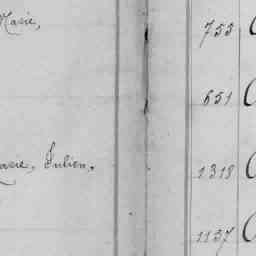 Marie, 753
651
Marie, Julien. 1318
1137